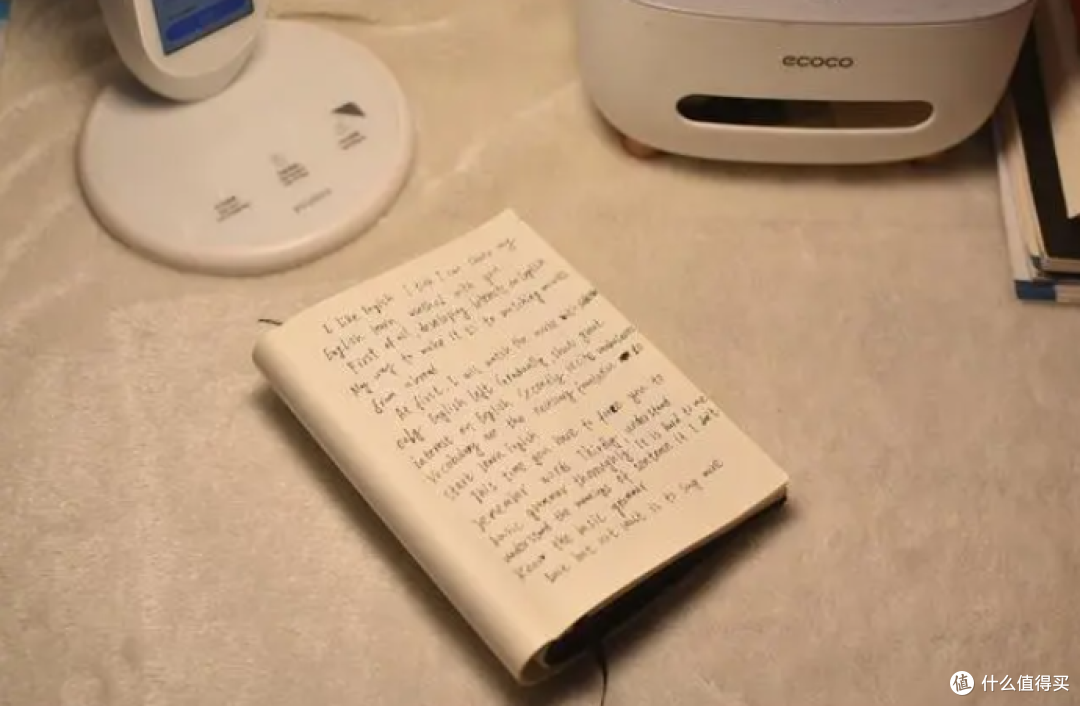 ecoco
I like English I think I can share my
English learn method with you
First of all developing interests on English
My way to make it is to watching movies
from abroad
At first, I will watch the movie
only English left Gradually, shows great
interest on English Secondly
Vocabulary are the necessary foundation
start learn English
This time you have to force you to
remember words Thirdly understand
basic grammar thoroughly It is hard to me
understand the meanings of sentence if I don't
Know the basic grammar
but not last is to
值 什么值得买